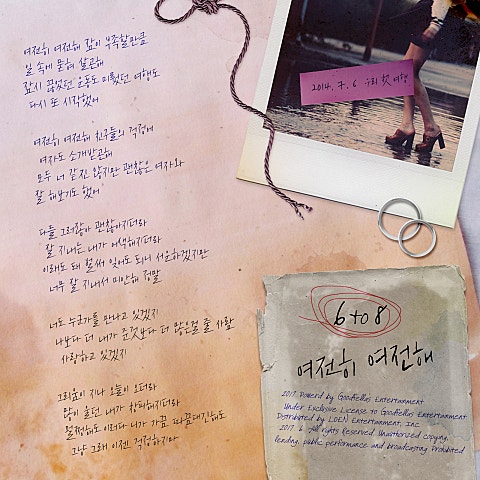 여전히 여전해 잠이 부족할만큼
일 속에 묻혀 살곤해
잠시 끊었던 운동도 미뤘던 여행도
다시 또 시작했어
여전히 여전해 친구들의 걱정에
여자도 소개받곤해
모두 너 같진 않지만 괜찮은 여자와
잘 해보기도 했어
다들 그러잖아 괜찮아지더라
잘 지내는 내가 어색해지더라
이래도 돼 벌써 잊어도 되니 서운하겠지만
너무 잘 지내서 미안해 정말
너도 누군가를 만나고 있겠지
나보다 더 내가 준것보다 더 많은걸 줄 사람
사랑하고 있겠지
그리움이 지나 오늘이 오더라
많이 울던 내가 창피해지더라
멀쩡해도 이러다 내가 가끔 따끔대긴해도
그냥 그래 이젠 걱정하지마
2014. 7. 6 우리 첫 여행
6 to 8
여전히 여전해
2017. Powerd by Goodfellas Entertainment
Under Exclusive License to Goodfellas Entertainment
Distributed by LOEN Entertainment, Inc
2017. 6. All rights Reserved. Unauthorized copying,
lending, public performance and broadcasting prohibited